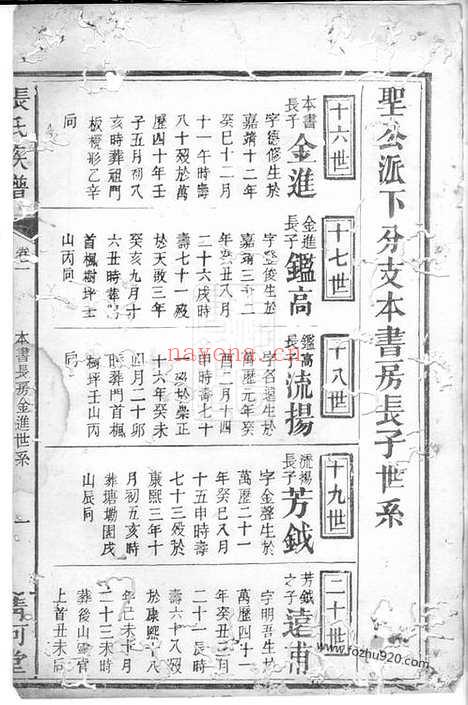 聖公派下分支本書房長子世系
十六世
本書長子金進
字德修生於
嘉靖十二年
癸巳十二月
十一午時壽
八十歿於萬
歷四十年壬
子五月初八
亥時葬祖門
板樓形乙辛
同
十七世
金進長子鑑高
字登俊生於
年癸丑八月
二十六戌時
壽七十一歿
於天啟三年
癸亥九月十
六丑時葬
首楓樹坪士
山丙同
十八世
鑑高長子流揚
字名遠生於
萬歷元年癸
酉二月十四
申時壽七十
一歿於崇正
十六年癸未
四月二十卯
時葬門首楓
樹坪壬山丙
同
十九世
流揚長子芳鉞
字金聲生於
萬歷二十一
年癸巳八月
十五申時壽
七十三歿於
康熙三年十
月初五亥時
葬塘坳園戌
山辰同
二十世
芳鉞之子遠甫
字明吾生於
萬歷四十一
年癸丑三月
二十一辰時
壽六十八歿
於康熙十八
年己未十月
二十三未時
葬後山靈官
上首丑未同
張氏族譜
卷二
本書長房金進世系
一
清河堂
nayona.cn
www.fozhu920.com